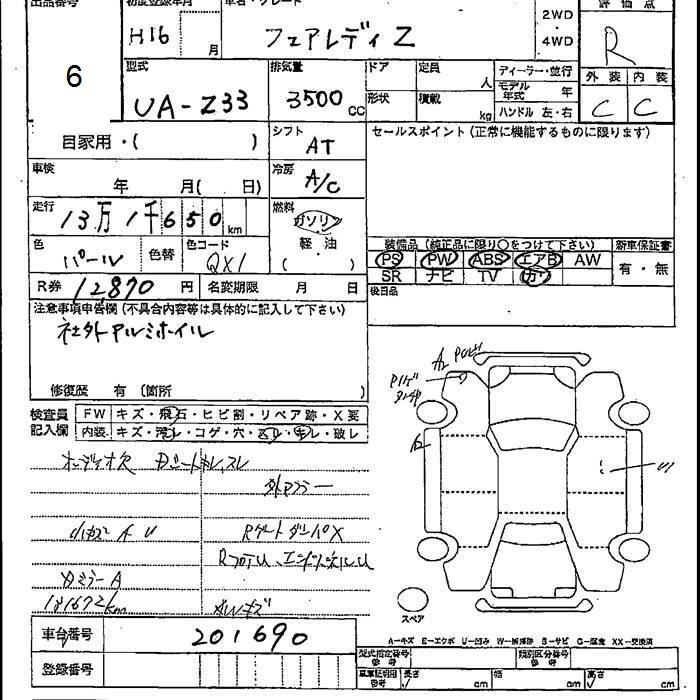 出品番号 初度登録年月 車名・グレード 評価点
6 H16 月 フェアレディ Z 2WD ・ 4WD R
型式 排気量 ドア 定員 人 ディーラー・並行 外装 内装
UA-Z33 3500 CC 形状 積載 kg モデル年式 年 C C
ハンドル 左・右
自家用・( ) シフト AT セールスポイント(正常に機能するものに限ります)
車検 年 月( 日) 冷房 A/C
走行 13万1千650km 燃料 ガソリン
色 パール 色替 色コード QX1 軽・油 ( )
装備品(純正品に限り○をつけて下さい) 新車保証書
PS PW ABS エアB AW 有・無
SR ナビ TV カワ
R券 12,870 円 名変期限 月 日 後日品
注意事項申告欄(不具合内容等は具体的に記入して下さい)
社外アルミホイル
修復歴 有(箇所 )
検査員 FW キズ・飛石・ヒビ割・リペア跡・X要
記入欄 内装 キズ・汚レ・コゲ・穴・スレ・キレ・破レ
オーディオ欠
外マフラー
Rゲートダンパ X
Dミラー A
131672km
AWキズ
A2
U1
スペア
A-キズ E-エクボ U-凹み W-補修跡 S-サビ C-腐食 XX-交換済
車台番号 201690
登録番号
型式指定番号 類別区分番号
車庫証明用 参考 長さ cm 幅 cm 高さ cm